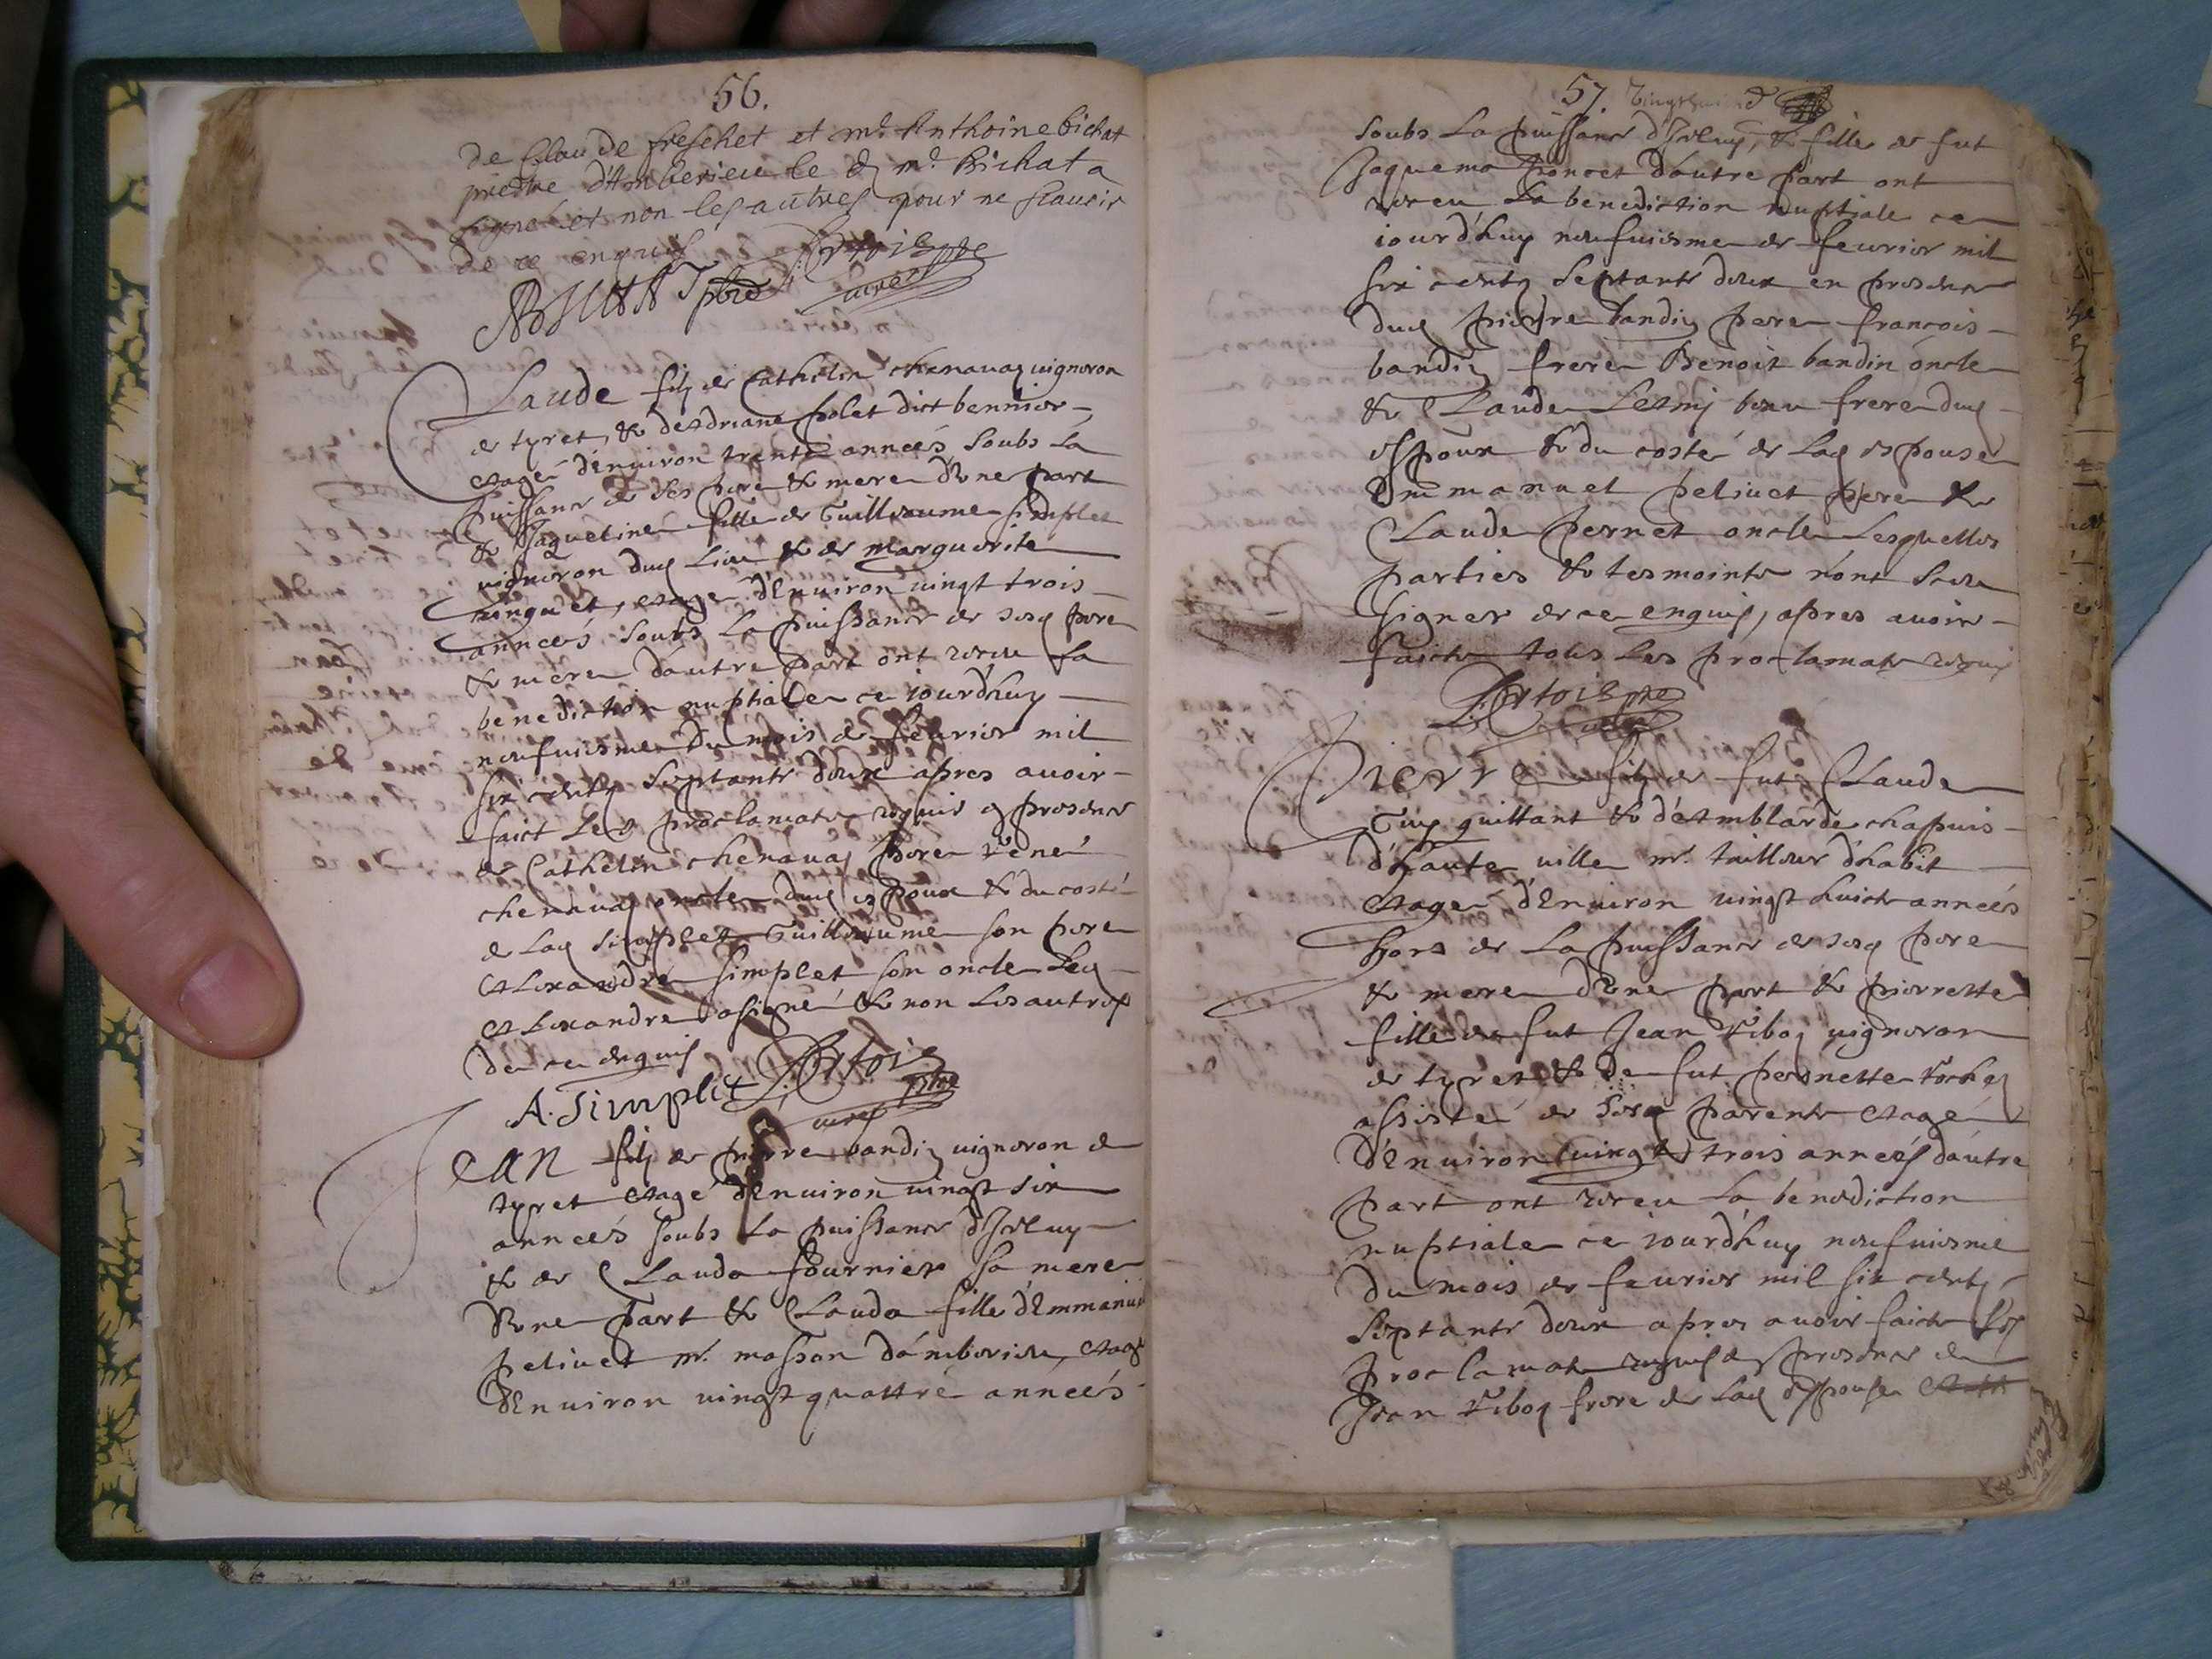 56.
De Claude freschet et mre Anthoine bichat
prestre d'Amberieu le d mre Bichat a
signé et non les autres pour ne scavoir
de ce enquis
A Bichat pbre
Claude filz de Cathelin chenavaz vigneron
de tyret, & d'Adriane polet dict bennier
eagé d'environ trente années soubs La
puissance de ses pere & mere d'vne part
& Jaqueline fille de Guillaume simplet
vigneron dud Lieu & de marguerite
eagé d'Environ vingt trois
années soubs La puissance de sesd pere
& mere d'autre part ont receu La
benediction nuptiale ce iourd'huy
neufuiesme du mois de feurier mil
six centz septante deux apres auoir
faict Les proclamats requis en presence
de Cathelin chenavaz pere René
chenavaz oncle dud espoux & du costé
de Lad simplet Guillaume son pere
Alexandre simplet son oncle Led
Alexandre a signé & non Les autres
de ce enquis
A. Simplet
Jean filz de pierre bandin vigneron de
tyret eagé d'Environ vingt six
années soubs La puissance d'Iceluy
& de Clauda fournier sa mere
d'vne part & Clauda fille d'Emmanuel
peliuet mre masson d'amberieu, eagé
d'Environ vingt quattre années
57.
soubs La puissance d'Iceluy, & fille de fut
Jaquema poncet d'autre part ont
receu La benediction nuptiale ce
iourd'huy neufuiesme de feurier mil
six centz septante deux en presence
dud pierre bandin pere francois
bandin frere Benoit bandin oncle
& Claude beau frere dud
espoux & du costé de Lad espouse
Emmanuel peliuet pere &
Claude pernet oncle Lesquelles
parties & tesmoints n'ont sceu
signer de ce enquis, apres auoir
faicts tous Les proclamats requis
Pierre filz de fut Claude
Guy quittant & d'Amblarde chapuis
d'haute ville mre tailleur d'habit
eagé d'Environ vingt huict années
hors de La puissance de sesd pere
& mere d'vne part & pierrette
fille de fut Jean Riboz vigneron
de tyret & de fut pernette
assisté de sesd parents eagé
d'Environ vingt trois années d'autre
part ont receu La benediction
nuptiale ce iourd'huy neufuiesme
du mois de feurier mil six centz
septante deux apres auoir faict Les
proclamats requis en presence de
Jean Riboz frere de Lad espouse